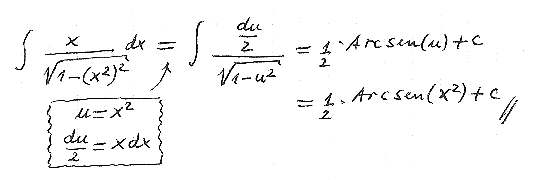 ∫ x/√(1-(x²)²) dx = ∫ (du/2)/√(1-u²) = 1/2 · Arcsen(u)+c
= 1/2 · Arcsen(x²)+c //
u=x²
du/2 = xdx